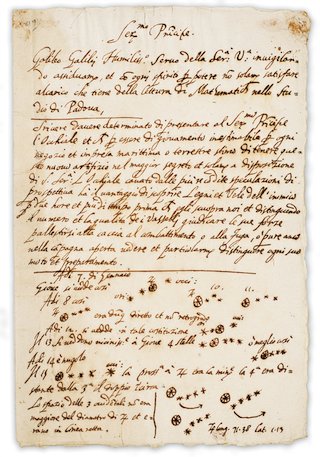 Ser.mo Principe.
Galileo Galilei Humiliss.o Servo della Ser.a V.a invigilan-
do assiduam.te, et cō ogni spirito p potere nō solam satisfare
al carico che tiene della lettura di Mathematich nello Stu-
dio di Padova,
Scrivere d'avere determinato di presentare al Ser.mo Pricipe
l'Occhiale et p essere di giovamento inestimabile p ogni
negozio et impresa marittima o terrestre stimo di tenere que-
sto nuovo artifizio nel maggior segreto et solam a disposizione
di S. Ser.: L'Occhiale cavato dalle più recōdite speculazioni di
prospettiva ha il vantaggio di scoprire Legni et Vele dell'inimico
due hore et più di tempo prima ch'egli scuopra noi et distinguendo
il numero et la qualità dei Vasselli, giudicare le sue forze
pallestirsi alla caccia al combattimento o alla fuga, o pure anco
nella capagna aperta vedere et particolarm distinguere ogni suo
moto et preparamento.
Adì 7. di Gennaio
Giove si vedde così
Adì 8 così
10. 11.
era dūq diretto et nō retrogrado
Adì 12. si vedde in tale costituzione
Il 13 si veddono vicinis.e a Giove 4 stelle o meglio così
Adì 14 è nugolo
Il 15
la pross.a a ♃ era la min.e la 4.a era di-
stante dalla 3.a il doppio incirca
Lo spazio delle 3 occidētali nō era
maggiore del diametro di ♃ et e-
rano in linea retta.
♃ long. 71.38 lat. 1.13